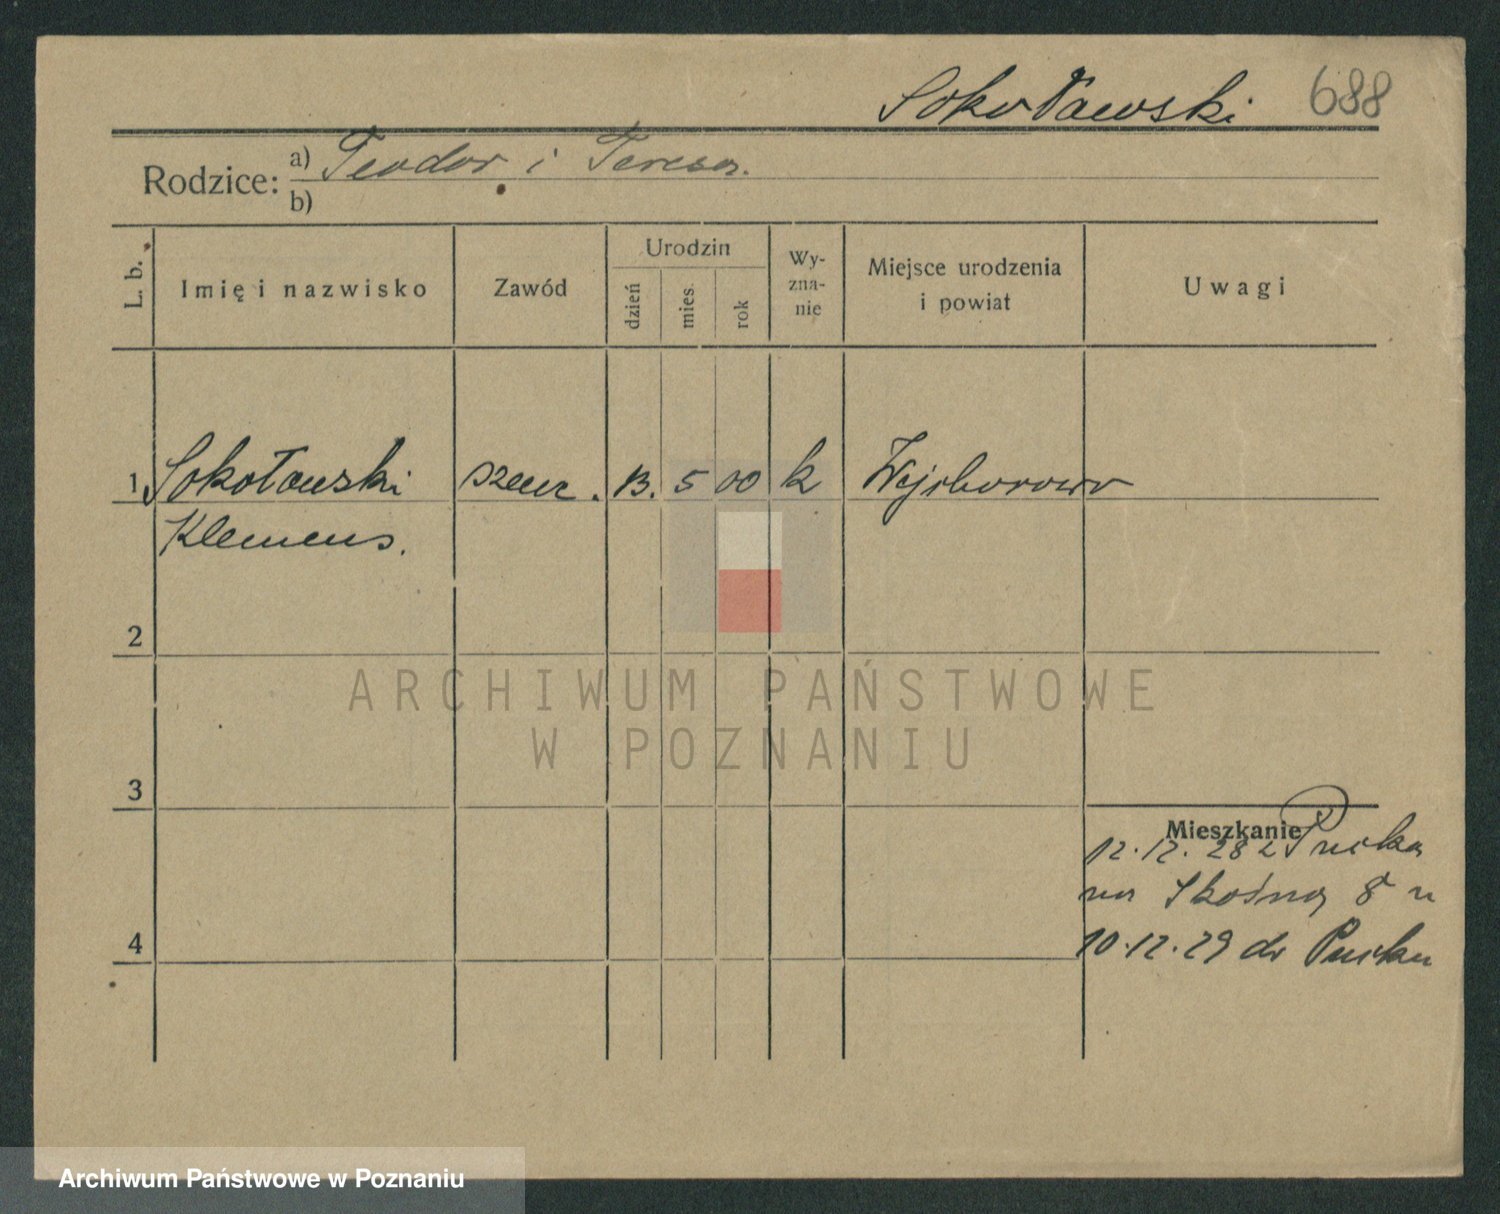 Sokołowski 688
Rodzice: a) Teodor i Teresa.
b)
L. b. Imię i nazwisko Zawód Urodzin dzień mies. rok Wy-zna-nie Miejsce urodzenia i powiat Uwagi
1 Sokołowski szewc. 13. 5 00 k Wejherowo
Klemens.
2
ARCHIWUM PAŃSTWOWE
W POZNANIU
3
Mieszkanie
12.12.28 z Pucka
na Skośną 8
10.12.29 do Pucka
4
Archiwum Państwowe w Poznaniu